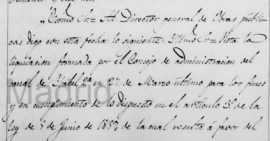 "Excmo Sr: Al Director general de Obras públi-
cas digo con esta fecha lo siguiente: Ilmo Sr: Vista la
liquidacion formada por el Consejo de administracion del
Canal de Isabel 2ª en 27 de Marzo último para los fines
y en cumplimiento de lo dispuesto en el artículo 3º de la
Ley de 7 de Junio de 1859, de la cual resulta á favor del